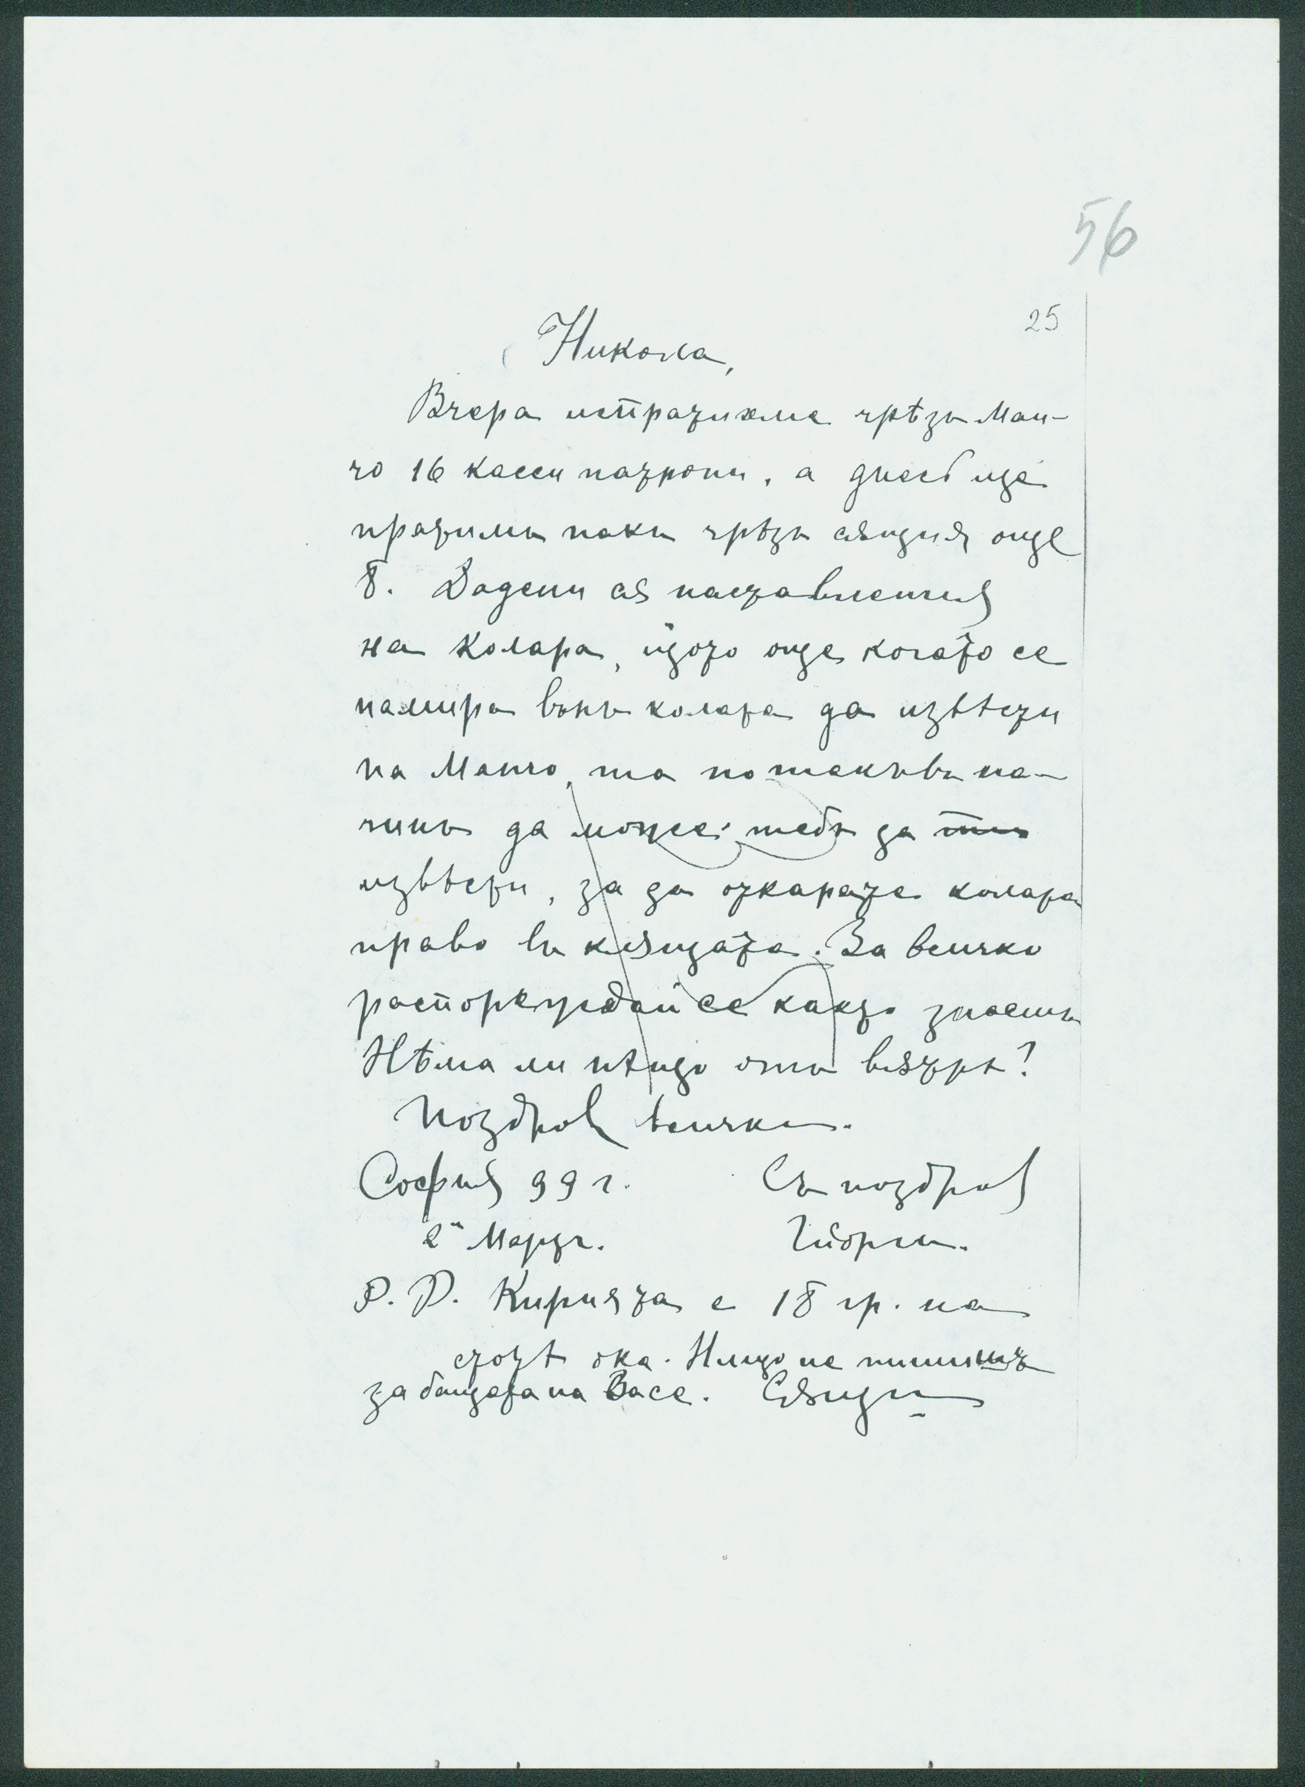 56
25
Никола,
Вчера испратихме чрѣзъ Ман-
чо 16 касси патрони, а днесъ ще
пратимъ паки чрѣзъ сѫщия още
8. Дадени сѫ наставления
на Колара, щото още когато се
намира вънъ колата да извѣсти
на Манчо, та по такъвъ на-
чинъ да може тебъ да
извѣсти, за да откарате колата
право въ кѫщата. За всичко
распореждай се както знаешъ
Нѣма ли нѣщо отъ вѫтрѣ?
Поздрав всички.
София 99 г. Съ поздрав
2й Мартъ. Гьорги.
P. P. Кирията е 18 гр. на
стотѣ ока. Нищо не пишишъ
за бащата на Васе. Сѫщи